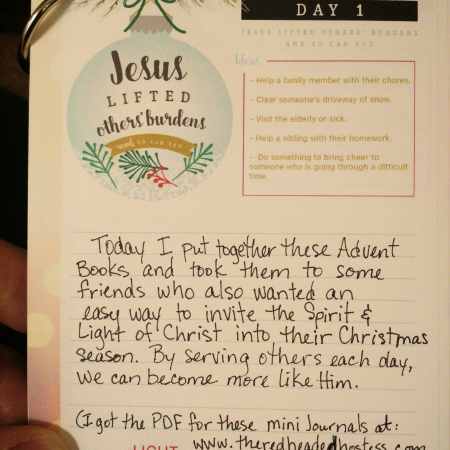 Jesus
LIFTED
others' burdens
and SO CAN YOU
DAY 1
JESUS LIFTED OTHERS' BURDENS
AND SO CAN YOU
Ideas:
- Help a family member with their chores.
- Clear someone's driveway of snow.
- Visit the elderly or sick.
- Help a sibling with their homework.
- Do something to bring cheer to
someone who is going through a difficult
time.
Today I put together these Advent
Books and took them to some
friends who also wanted an
easy way to invite the Spirit &
Light of Christ into their Christmas
season. By serving others each day,
we can become more like Him.
(I got the PDF for these mini Journals at:
LIGHT www.theredheadedhostess.com